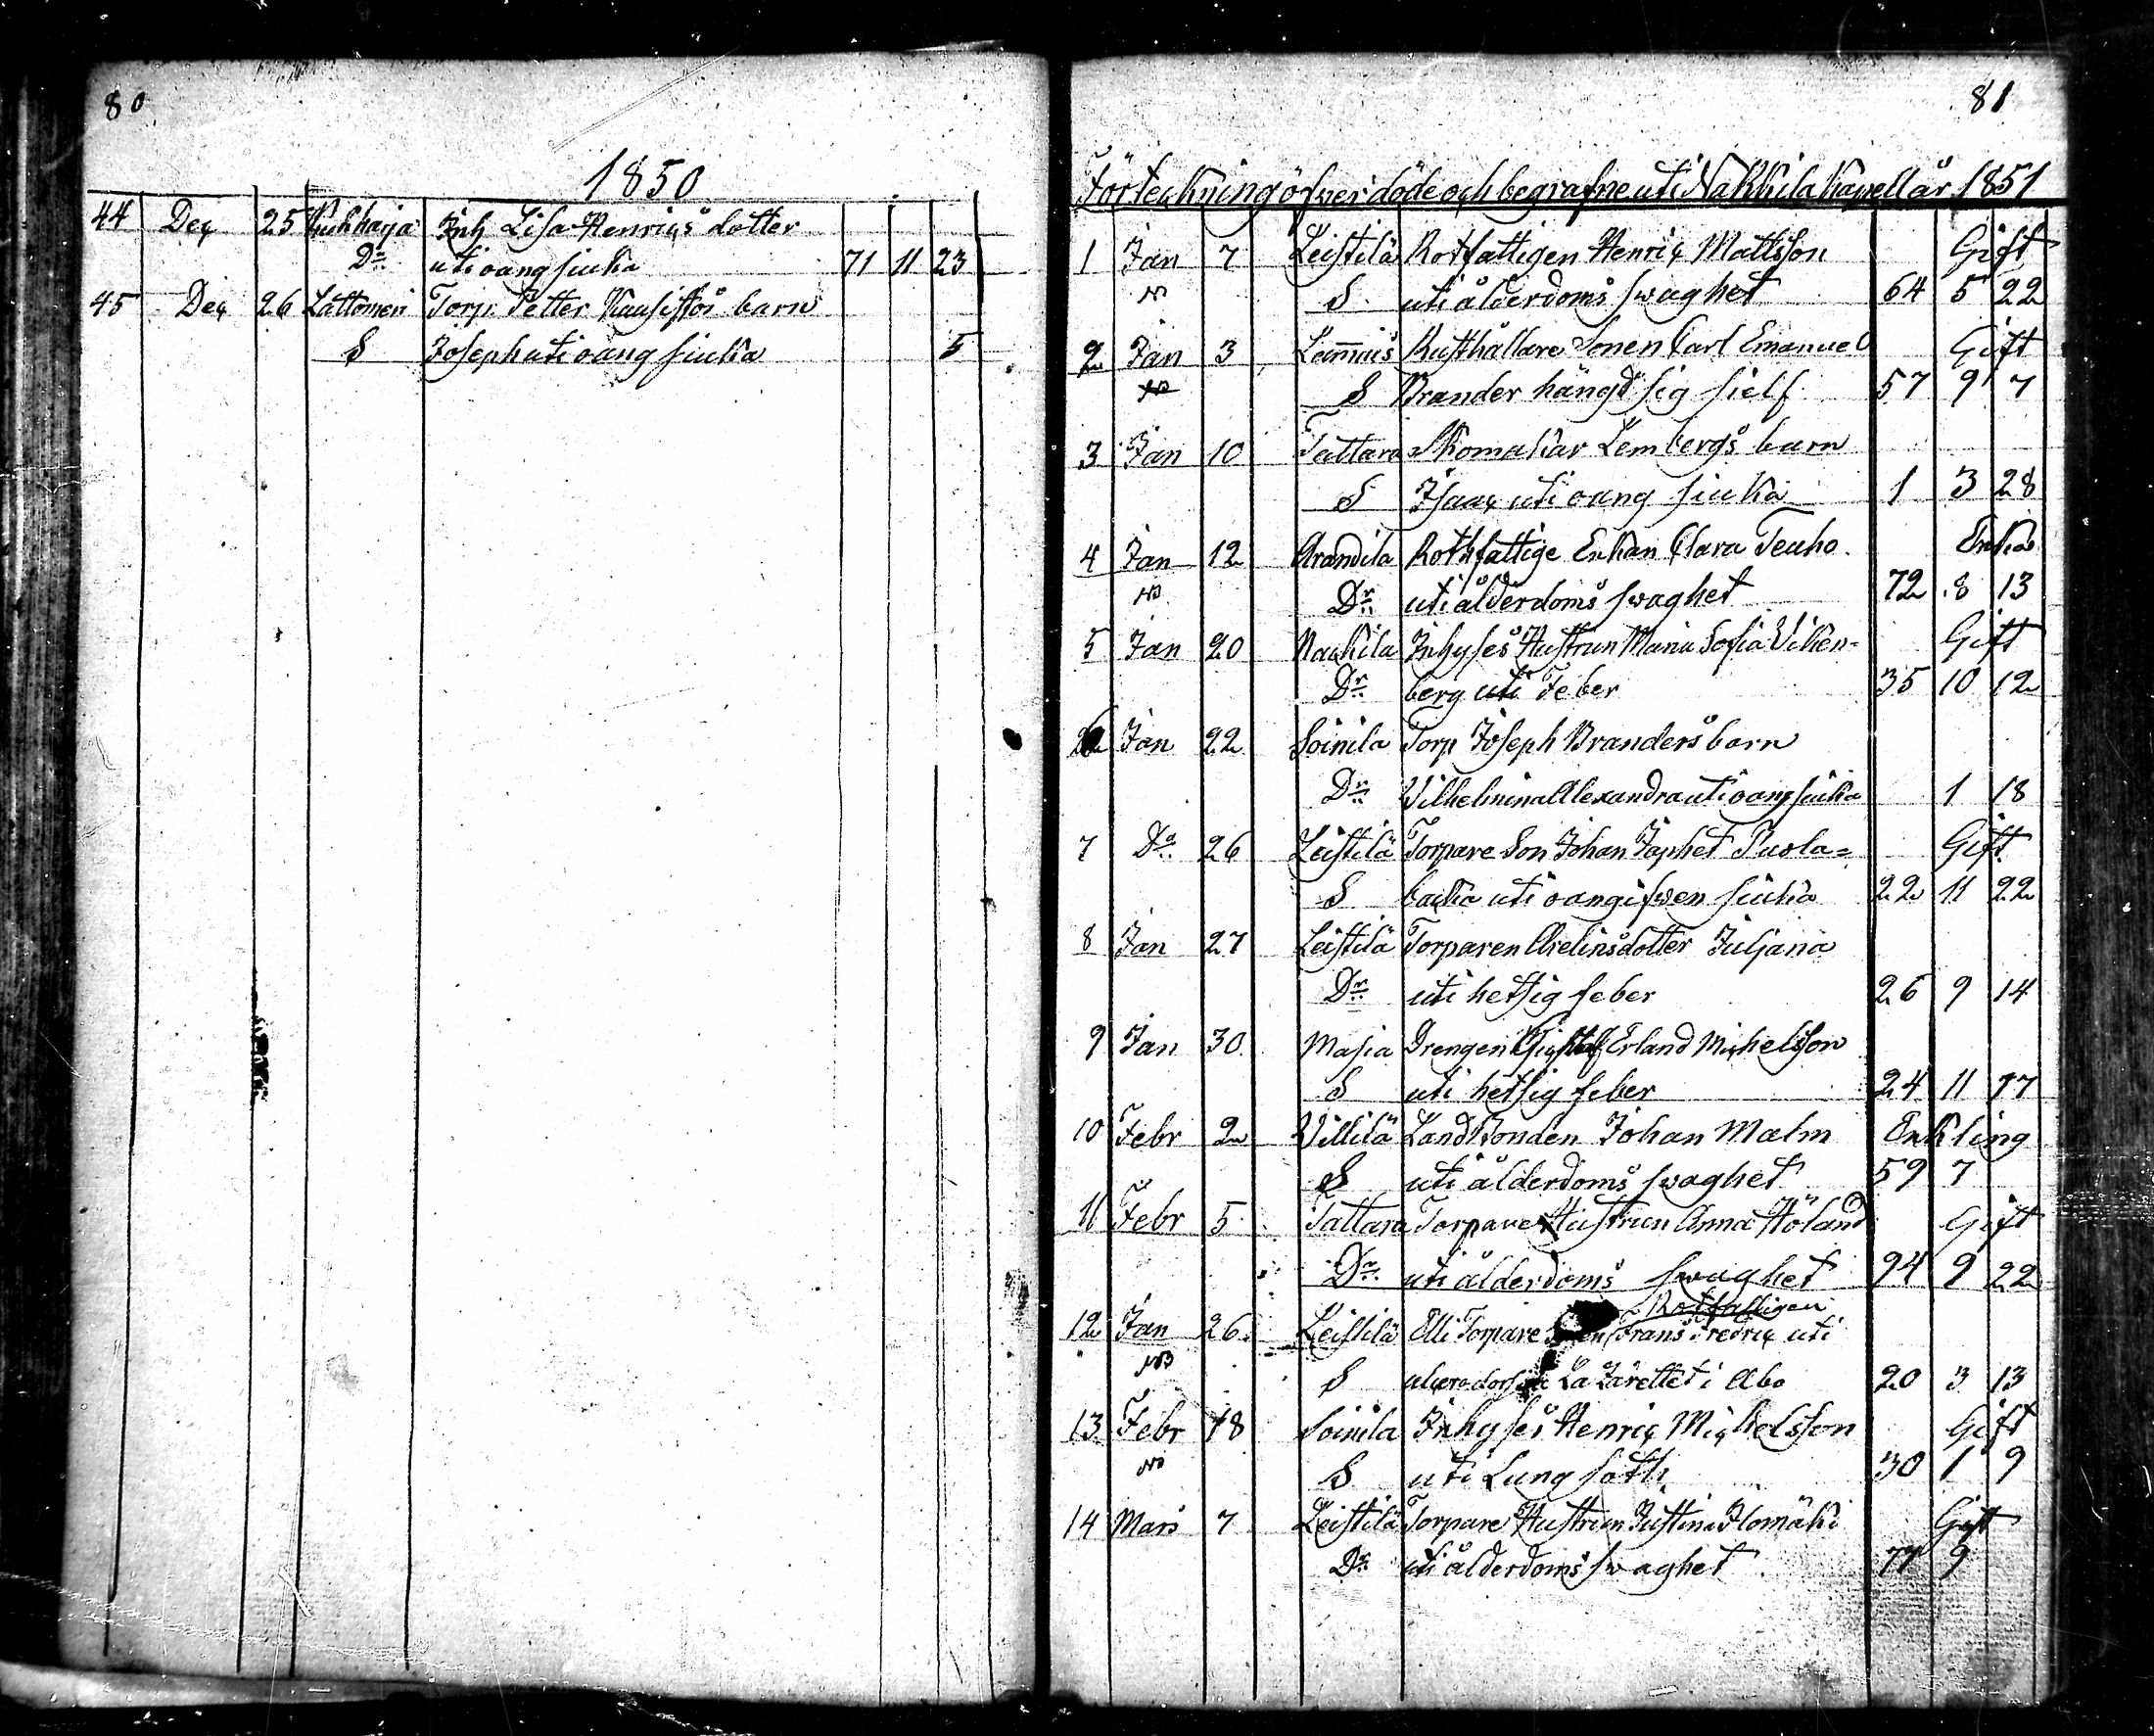 80
1850
44 Dec 25 Kuhharja Inh Lisa Henrics dotter
Dr uti oangsiuka 71 11 23
45 Dec 26 Lattomeri Torp. Petter barn
S Joseph uti oangsiuka 5
81
Förteckning öfver döde och begrafne uti Nakkila Kapell år 1851
1 Jan 7 Leistilä Rotfattigen Henric Mattsson Gift
S uti ålderdoms swaghet 64 5 22
2 Jan 3 Lammais Rusthållare Sonen Carl Emanuel Gift
S Brander hängd sig sielf 57 9 7
3 Jan 10 Tattara Skomakar Lembergs barn
S Isaac uti oang siuka 1 3 28
4 Jan 12 Arandila Rothfattige Enkan Clara Teuho Enka
NB Dr uti ålderdoms swaghet 72 8 13
5 Jan 20 Nackila Inhyses Hustrun Maria Sofia Viken- Gift
Dr berg uti Feber 35 10 12
Jan 22 Soinila Torp Joseph Branders barn
Dr Vilhelmina Alexandra uti oangsiuka 1 18
7 Do 26 Leistilä Torpare Son Johan Japhet Puola= Gift
S backa uti oangifven siuka 22 11 22
8 Jan 27 Leistilä Torparen Avelins dotter Juljana
Dr uti hetsig feber 26 9 14
9 Jan 30 Masia Drengen Gustaf Erland Michelsson
S uti hetsig feber 24 11 17
10 Febr 2 Villilä Landbonden Johan Malm Enkling
S uti ålderdoms swaghet 59 7
11 Febr 5 Tattara Torpare Hustrun Anna Höland Gift
Dr uti ålderdoms swaghet 94 9 22
Rotfattigen
12 Jan 26 Leistilä Elli Torpare Frans Fredric uti
NB S Lazarettet i Åbo 20 3 13
13 Febr 18 Soinila Inhyses Henric Michelsson Gift
NB S uti Lung soth 30 1 9
14 Mars 7 Leistilä Torpare Hustrun Justina Ilomäki Gift
Dr uti ålderdoms swaghet 77 9